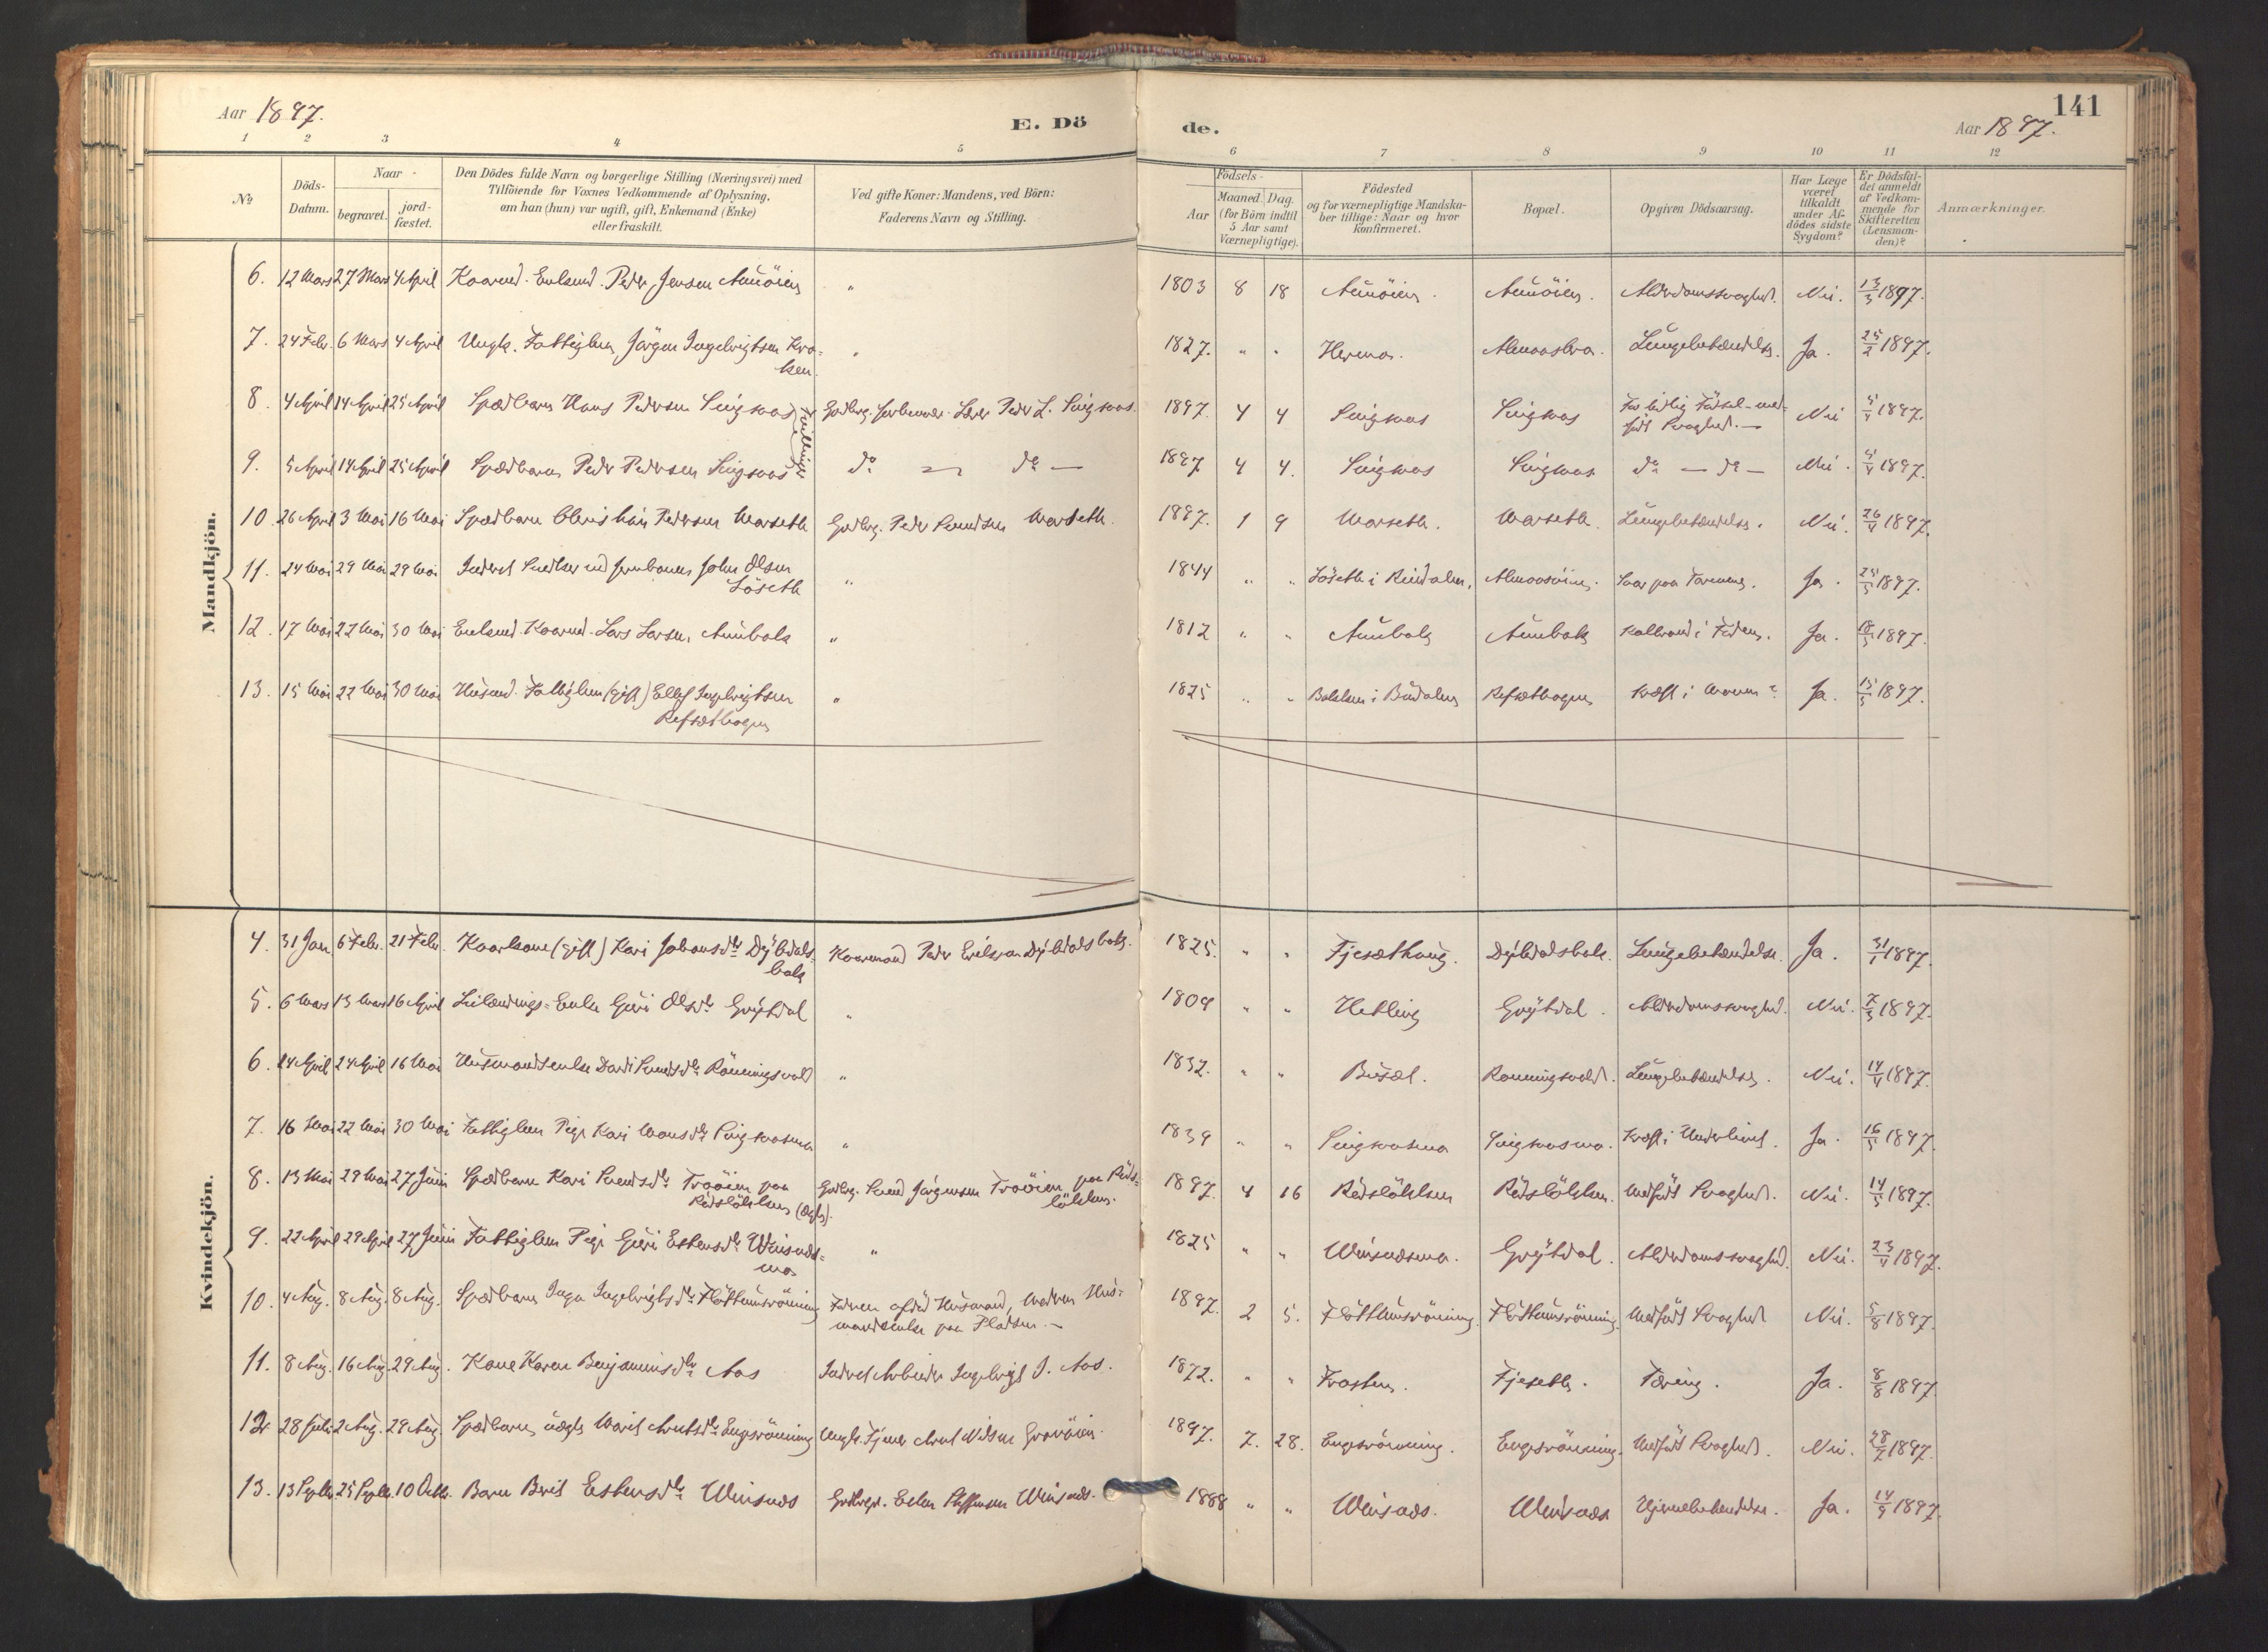 Aar 1897.
E. Dö
de.
Aar 1897.
141
1 2 3 4 5 6 7 8 9 10 11 12
No
Döds-
Datum.
Naar
begravet.
jord-
fæstet.
Den Dödes fulde Navn og borgerlige Stilling (Næringsvei) med
Tilföiende for Voxnes Vedkommende af Oplysning,
om han (hun) var ugift, gift, Enkemand (Enke)
eller fraskilt.
Ved gifte Koner: Mandens, ved Börn:
Faderens Navn og Stilling.
Födsels-
Aar
Maaned.
Dag.
(for Börn indtil
5 Aar samt
Værnepligtige).
Födested
og for værnepligtige Mandska-
ber tillige: Naar og hvor
konfirmeret.
Bopæl.
Opgiven Dödsaarsag.
Har Læge
været
tilkaldt
under Af-
dödes sidste
Sygdom?
Er Dödsfal-
det anmeldt
af Vedkom-
mende for
Skifteretten
(Lensman-
den)?
Anmærkninger.
Mandkjön.
6. 12 Mars 27 Mars 4 April Kaarmd. Enkemd. Peder Jensen Aunöien " 1803 8 18 Aunöien. Aunöien. Alderdomssvaghed. Nei. 13/3 1897.
7. 24 Febr. 6 Mars 4 April Ungk. Fattiglem Jörgen Ingebrigtsen Kro-
ken. " 1827. " " Hermo. Almaaskro. Lungebetændelse. Ja. 25/2 1897.
8. 4 April 14 April 25 April Spædbarn Hans Pedersen Singsaas Tvillinger Gaardbrg. Lærer Peder L. Singsaas. 1897. 4 4 Singsaas Singsaas For tidlig Födsel - med-
född Svaghed. Nei 5/4 1897.
9. 5 April 14 April 25 April Spædbarn Peder Pedersen Singsaas do. — do. — 1897 4 4. Singsaas Singsaas do — do — Nei. 5/4 1897.
10. 26 April 3 Mai 16 Mai Spædbarn Christian Pedersen Marseth Gaardbrg. Peder Svendsen Marseth. 1897. 1 9 Marseth. Marseth. Lungebetændelse. Nei. 26/4 1897.
11. 24 Mai 29 Mai 29 Mai Inderst Snedker ved Jernbanen John Olsen
Löseth " 1844 " " Löseth i Rindalen. Almaasöien. Saar paa Tarmene. Ja. 25/5 1897.
12. 17 Mai 22 Mai 30 Mai Enkemd. Kaarmd. Lars Larsen Aunbak " 1812 " " Aunbak Aunbak Koldbrand i Foden. Ja. 18/5 1897.
13. 15 Mai 22 Mai 30 Mai Husmd. Fattiglem (gift) Ellef Ingebrigtsen
Refsethagen " 1825 " " Bakken i Budalen Refsethagen Kræft i Maven? Ja. 15/5 1897.
Kvindekjön.
4. 31 Jan 6 Febr. 21 Febr. Kaarkone (gift) Kari Johansdr. Dybdals-
bak Kaarmand Peder Erikson Dybdalsbak. 1825. " " Fjesæthaug. Dybdalsbak. Lungebetændelse. Ja. 31/1 1897.
5. 6 Mars 13 Mars 16 April Leilændings-Enke Guri Olsdr. Grytdal " 1809 " " Hetling Grytdal. Alderdomssvaghed. Nei. 7/3 1897.
6. 14 April 24 April 16 Mai Husmandsenke Dordi Svendsdr. Rönningsvold " 1832. " " Busæt. Rönningsvold. Lungebetændelse. Nei. 14/4 1897.
7. 16 Mai 22 Mai 30 Mai Fattiglem Pige Kari Monsdr. Singsaasmo " 1839 " " Singsaasmo Singsaasmo. Kræft i Underlivet. Ja. 16/5 1897.
8. 13 Mai 29 Mai 27 Juni Spædbarn Kari Svendsdr. Troöien paa
Rödslökken (ægte). Gaardbrg. Svend Jörgensen Troöien paa Röds-
lökken. 1897. 4 16 Rödslökken Rödslökken. Medfödt Svaghed. Nei. 14/5 1897.
9. 22 April 29 April 27 Juni Fattiglem Pige Guri Estensdr. Winsnæs-
mo " 1825 " " Winsnæsmo. Grytdal. Alderdomssvaghed. Nei. 23/4 1897.
10. 4 Aug. 8 Aug. 8 Aug. Spædbarn Inga Ingebrigtsdr. Flöttumsrönning Faderen afdöd Husmand, Moderen Hus-
mandsenke paa Pladsen. — 1897. 2 5. Flöttumsrönning. Flöttumsrönning. Medfödt Svaghed Nei. 5/8 1897.
11. 8 Aug. 16 Aug. 29 Aug. Kone Karen Benjaminsdr. Aas Inderst Arbeider Ingebrigt J. Aas. 1872. " " Frosten. Fjeseth. Tæring. Ja. 8/8 1897
12 28 Juli 2 Aug. 29 Aug. Spædbarn uægte Marit Arntsdr. Engesrönning Ungk. Tjener Arnt Nilsen Gronöien. 1897. 7. 28. Engesrönning. Engesrönning. Medfödt Svaghed. Nei. 28/7 1897.
13. 13 Septbr. 25 Septbr. 10 Octbr. Barn Berit Estensdr. Winsnæs Gaardbrg. Esten Steffensen Winsnæs. 1888 " " Winsnæs. Winsnæs Hjernebetændelse. Ja. 14/9 1897.